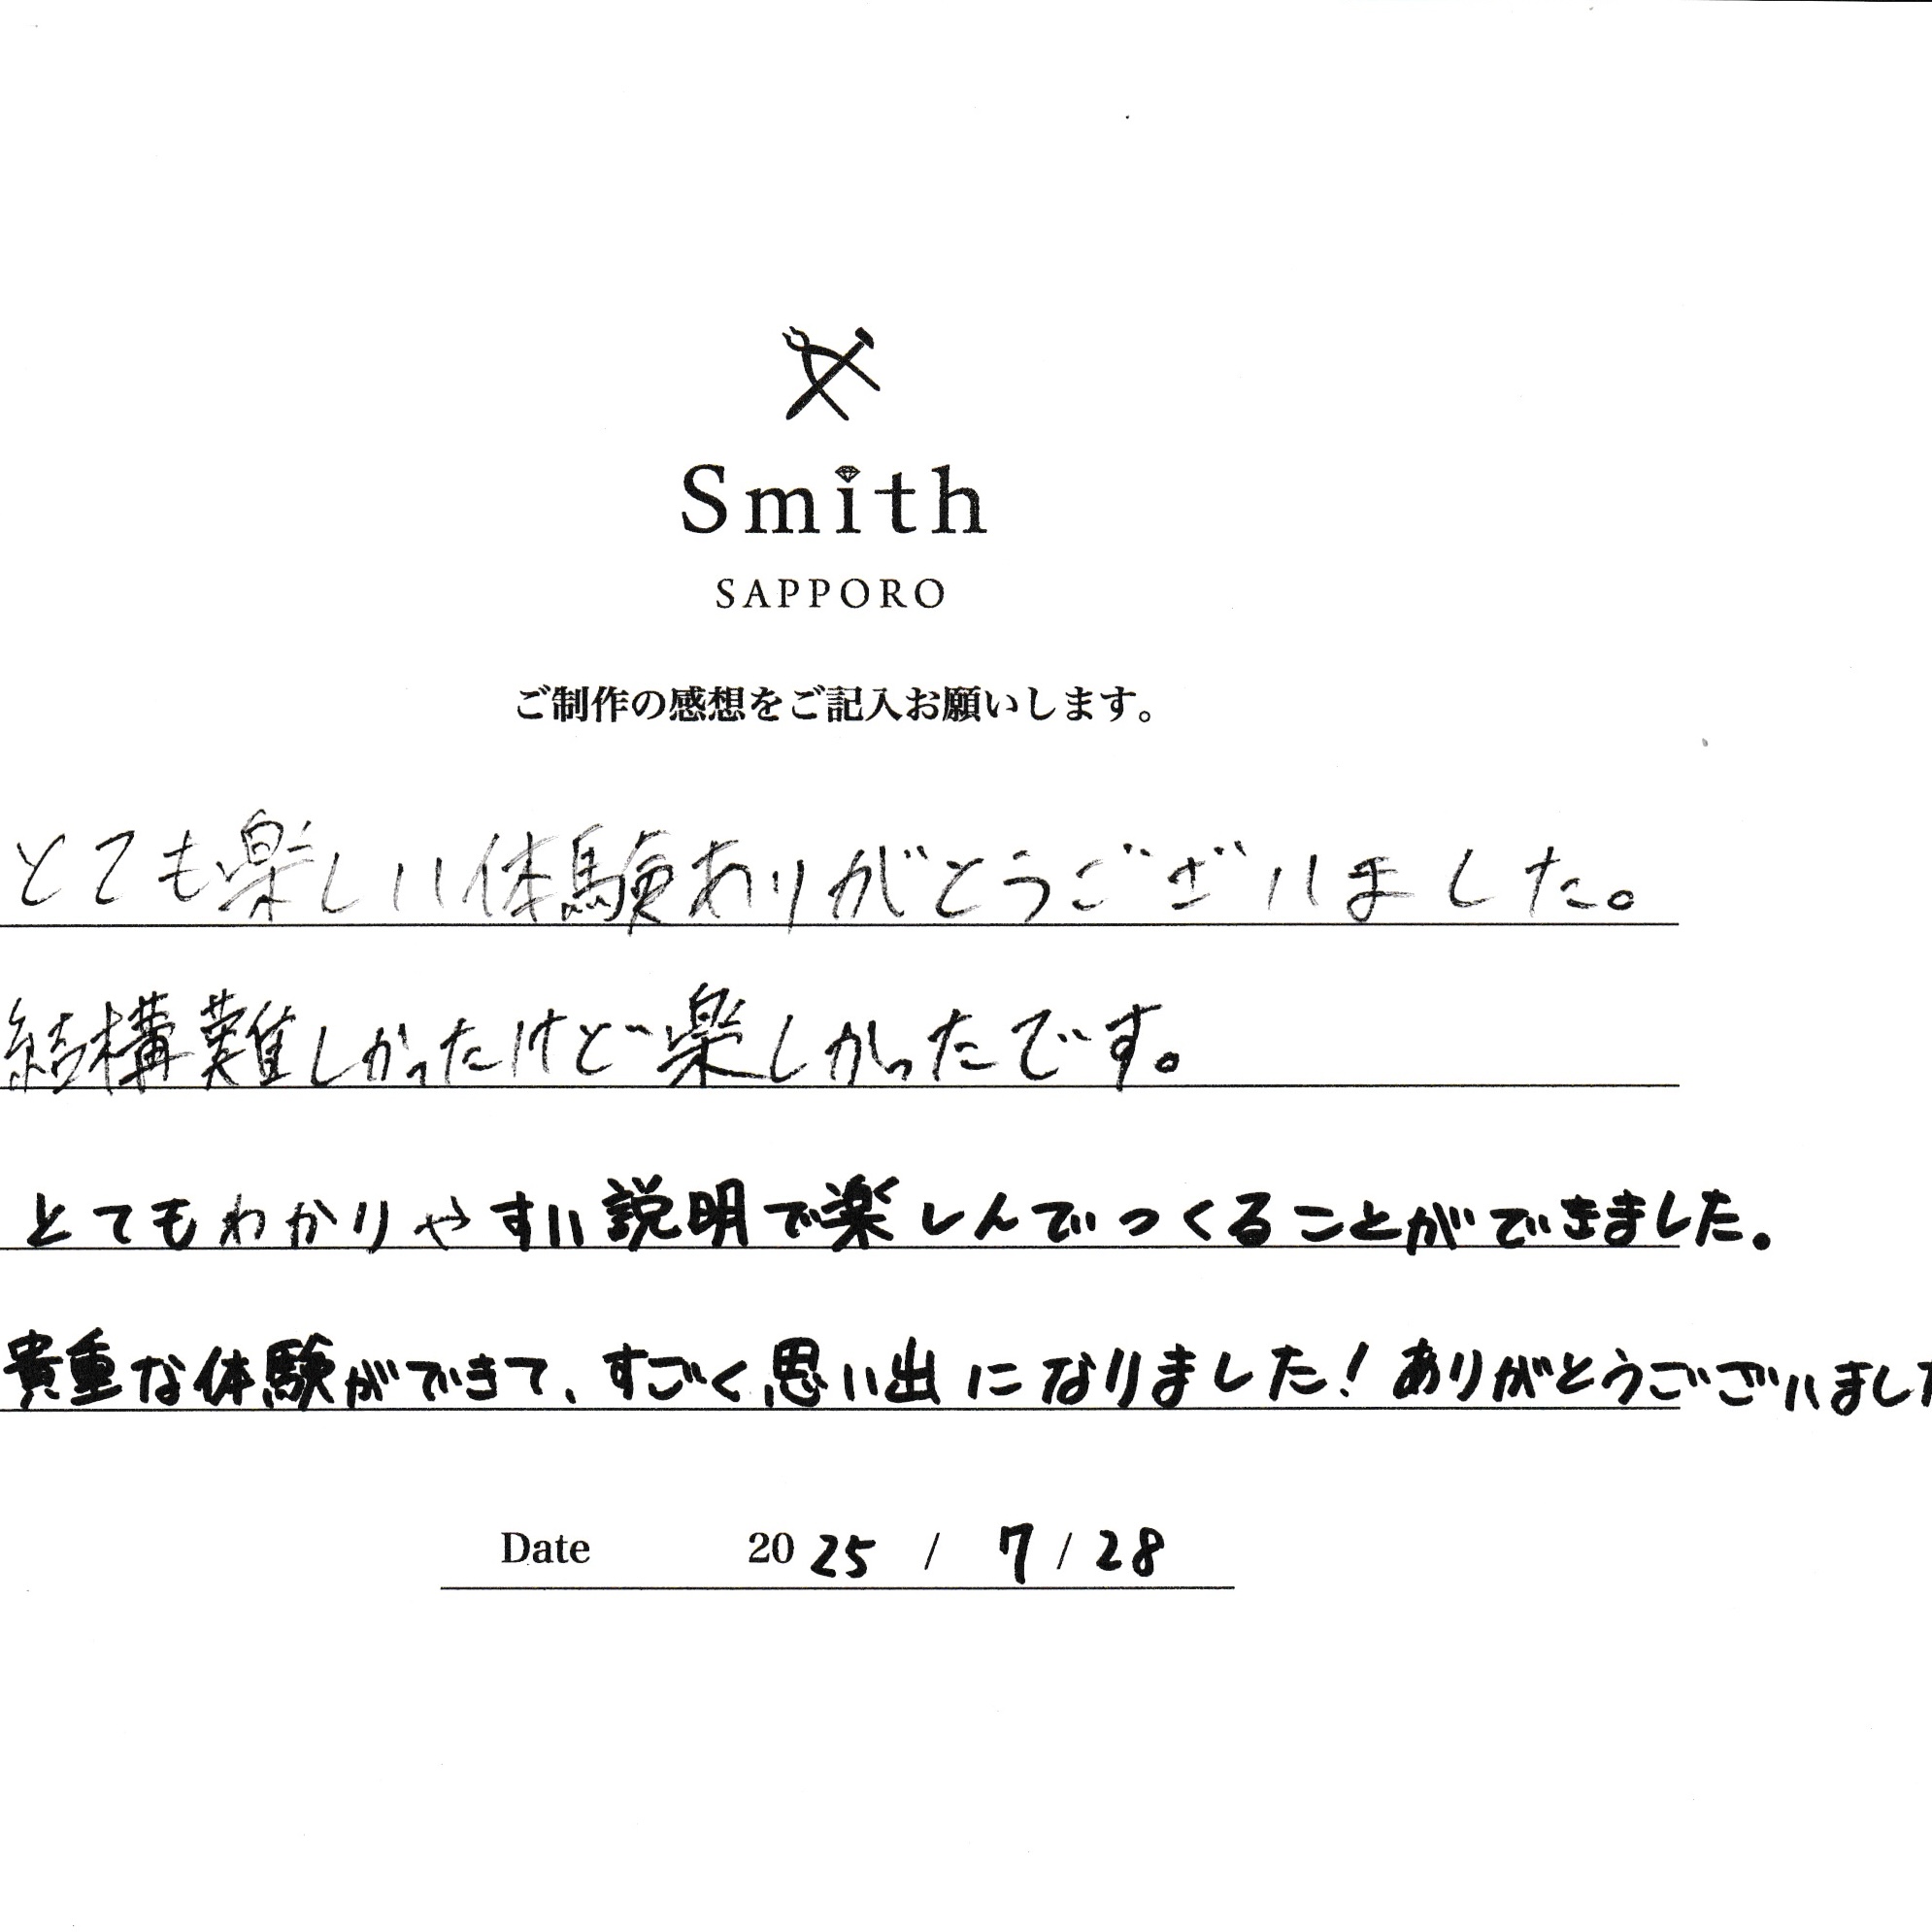 Smith
SAPPORO
ご制作の感想をご記入お願いします。
とても楽しい体験ありがとうございました。
結構難しかったけど楽しかったです。
とてもわかりやすい説明で楽しんでつくることができました。
貴重な体験ができて、すごく思い出になりました！ありがとうございました
Date 2025 / 7 / 28